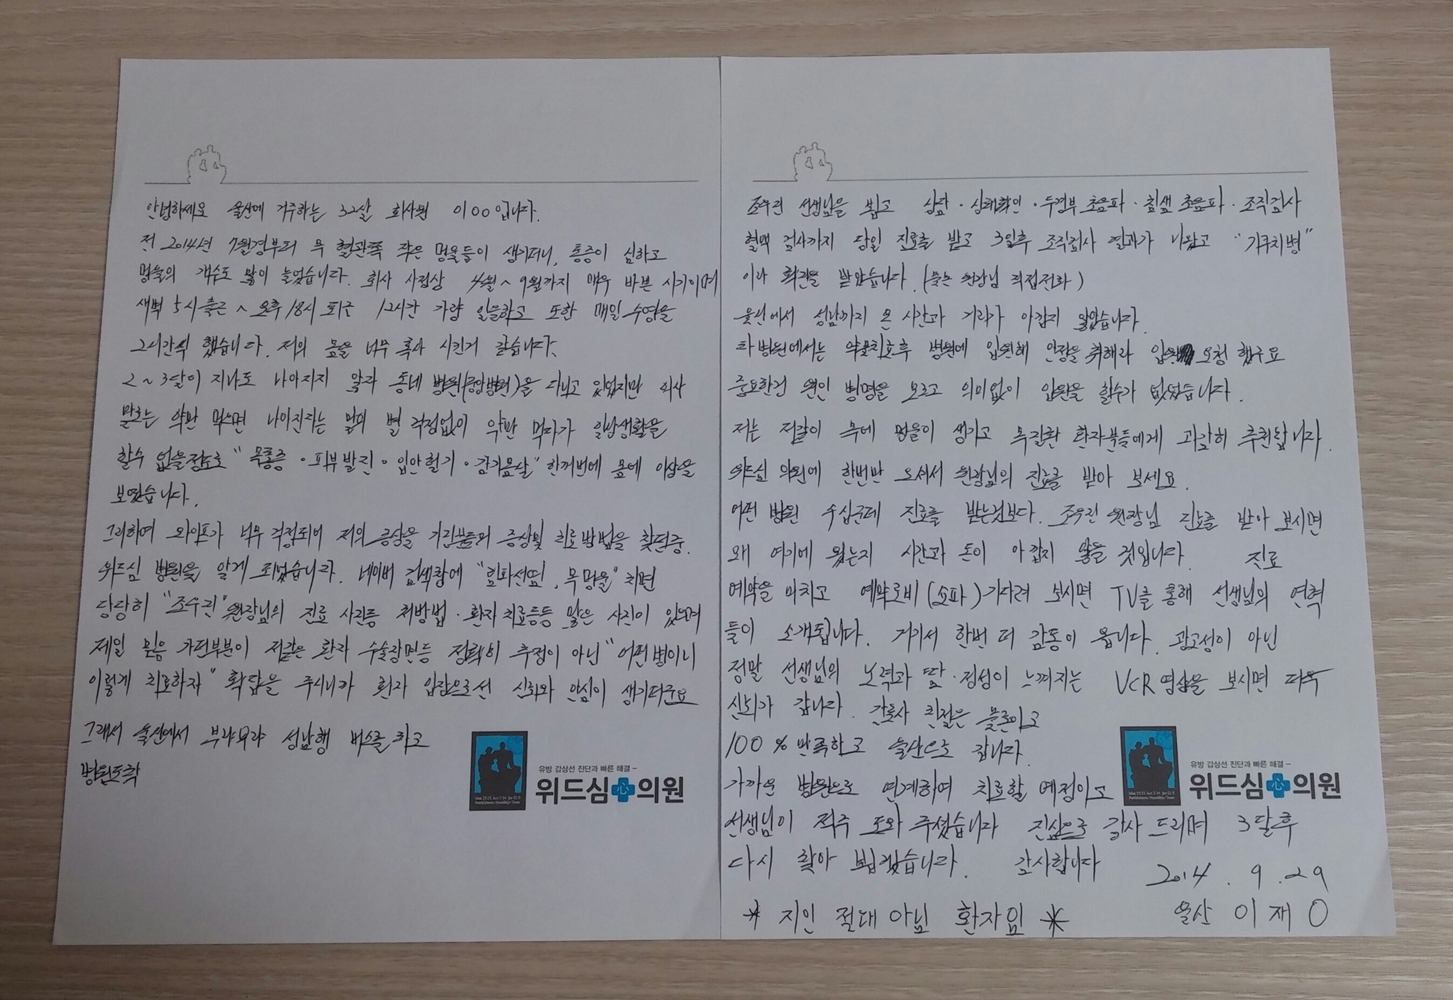 안녕하세요 울산에 거주하는 32살 회사원 이00입니다.
전 2014년 7월경부터 목 혈관쪽 작은 멍울들이 생기더니, 통증이 심하고
멍울의 개수도 많이 늘었습니다. 회사 사정상 4월 ~ 9월까지 매우 바쁜 시기이며
새벽 5시출근 ~ 오후 18시 퇴근 12시간 가량 일을하고 또한 매일 수영을
2시간씩 했습니다. 저의 몸을 너무 혹사 시킨거 같습니다.
2~3달이 지나도 나아지지 않자 동네 병원을 다니고 있었지만 의사
말로는 약만 먹으면 나아진다는 말에 별 걱정없이 약만 먹다가 일상생활을
할수 없을정도로 "목통증 · 피부발진 · 입안헐기 · 감기몸살" 한꺼번에 몸에 이상을
보였습니다.
그리하여 와이프가 너무 걱정되어 저의 증상을 가진분들의 증상및 치료방법을 찾던중.
위드심 병원을 알게 되었습니다. 네이버 검색창에 "임파선염, 목멍울" 치면
당당히 "조수진" 원장님의 진료 사진등 처방법 · 환자 치료등등 많은 사진이 있으며
제일 믿음 가던부분이 저같은 환자 수술장면등 정확히 추정이 아닌 "어떤병이니
이렇게 치료하자" 확답을 주시니까 환자 입장으로선 신뢰와 안심이 생기더군요
그래서 울산에서 부랴부랴 성남행 버스를 타고
병원도착
유방 갑상선 진단과 빠른 해결 –
위드심 心 의원
조수진 선생님을 뵙고 상담 · 상태확인 · 두경부 초음파 · 침샘 초음파 · 조직검사
혈액 검사까지 당일 진료를 받고 3일후 조직검사 결과가 나왔고 "기쿠치병"
이라 확진을 받았습니다. ( 원장님 직접전화)
울산에서 성남까지 온 시간과 거리가 아깝지 않았습니다.
타병원에서는 약물치료후 병원에 입원해 안정을 취해라 입원 요청 했구요
중요한건 원인 병명을 모르고 의미없이 입원을 할수가 없었습니다.
저는 저같이 목에 멍울이 생기고 특정한 환자분들에게 과감히 추천됩니다.
위드심 의원에 한번만 오셔서 원장님의 진료를 받아 보세요.
어떤 병원 수십군데 진료를 받는것보다. 조수진 원장님 진료를 받아 보시면
왜 여기에 왔는지 시간과 돈이 아깝지 않을 것입니다. 진료
예약을 마치고 예약로비(쇼파) 기다려 보시면 TV를 통해 선생님의 연혁
들이 소개됩니다. 거기서 한번 더 감동이 옵니다. 광고성이 아닌
정말 선생님의 노력과 땀 · 정성이 느껴지는 VCR영상을 보시면 더욱
신뢰가 갑니다. 간호사 친절은 물론이고
100% 만족하고 울산으로 갑니다.
가까운 병원으로 연계하여 치료할 예정이고
선생님이 적극 도와 주셨습니다 진심으로 감사 드리며 3달후
다시 찾아 뵙겠습니다. 감사합니다
2014. 9. 29
* 지인 절대 아님 환자임 * 울산 이재O
유방 갑상선 진단과 빠른 해결 –
위드심 心 의원